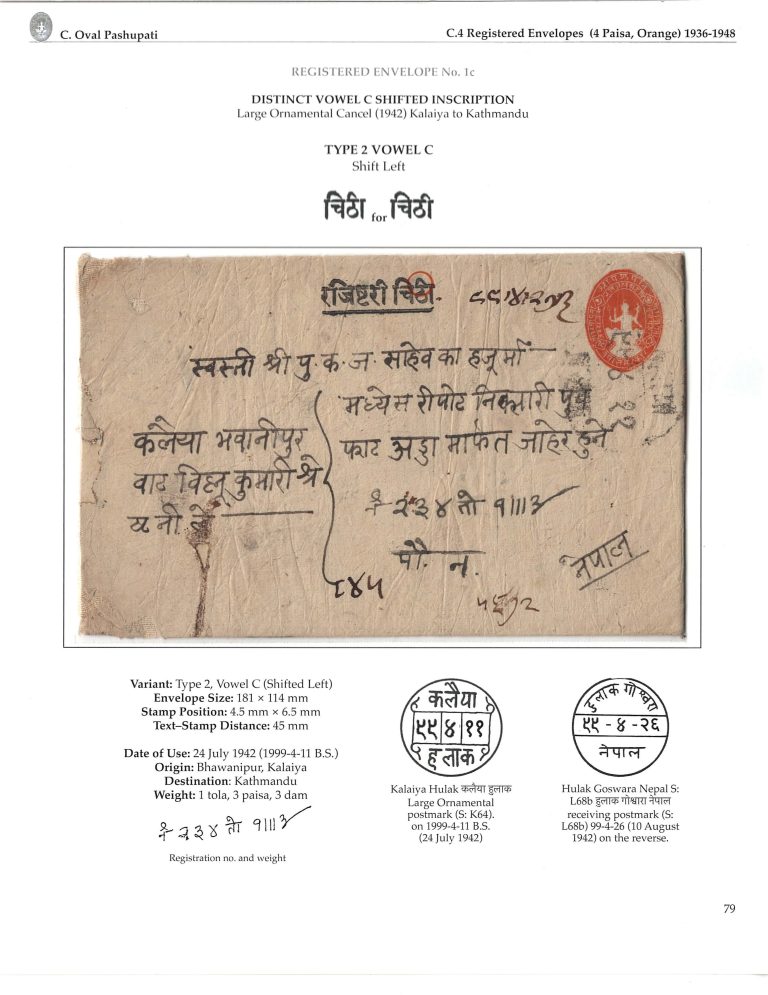 C. Oval Pashupati
C.4 Registered Envelopes (4 Paisa, Orange) 1936-1948
REGISTERED ENVELOPE No. 1c
DISTINCT VOWEL C SHIFTED INSCRIPTION
Large Ornamental Cancel (1942) Kalaiya to Kathmandu
TYPE 2 VOWEL C
Shift Left
चिठी for चिठी
रजिष्टरी चिठी.
स्वस्ती श्री पु. क. ज. साहेव का हजूर्मा
मध्येस रीपोट निक्सारी पूर्व
फाट अड्डा मार्फत जाहेर हुने
कलैया भवानीपुर
वाट विष्नू कुमारी श्रे
नं २३४ तो १।।।३
पौ. न.
नेपाल
८४५
Variant: Type 2, Vowel C (Shifted Left)
Envelope Size: 181 × 114 mm
Stamp Position: 4.5 mm × 6.5 mm
Text–Stamp Distance: 45 mm
Date of Use: 24 July 1942 (1999-4-11 B.S.)
Origin: Bhawanipur, Kalaiya
Destination: Kathmandu
Weight: 1 tola, 3 paisa, 3 dam
नं २३४ तो १।।।३
Registration no. and weight
कलैया
९९ ४ ११
हुलाक
Kalaiya Hulak कलैया हुलाक
Large Ornamental
postmark (S: K64).
on 1999-4-11 B.S.
(24 July 1942)
हुलाक गोश्वारा
९९ - ४ - २६
नेपाल
Hulak Goswara Nepal S:
L68b हुलाक गोश्वारा नेपाल
receiving postmark (S:
L68b) 99-4-26 (10 August
1942) on the reverse.
79